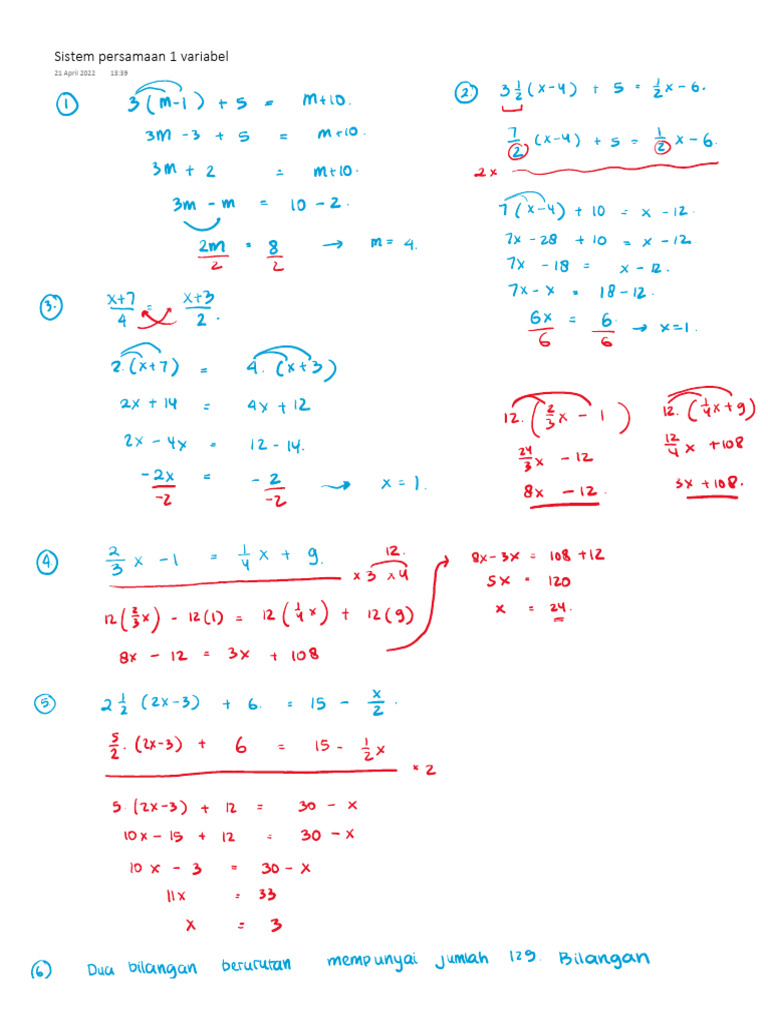 Sistem persamaan 1 variabel
21 April 2022 13:39
① 3(m-1) + 5 = m+10.
3m - 3 + 5 = m+10.
3m + 2 = m+10.
3m - m = 10 - 2.
2m/2 = 8/2 → m = 4.
②. 3 1/2 (x-4) + 5 = 1/2 x - 6.
7/2 (x-4) + 5 = 1/2 x - 6.
2x
7(x-4) + 10 = x - 12.
7x - 28 + 10 = x - 12
7x - 18 = x - 12.
7x - x = 18 - 12.
6x/6 = 6/6 → x=1.
③. x+7/4 = x+3/2.
2.(x+7) = 4.(x+3)
2x + 14 = 4x + 12
2x - 4x = 12 - 14.
-2x/-2 = -2/-2 → x = 1.
12.(2/3 x - 1)
24/3 x - 12
8x - 12.
12.(1/4 x + 9)
12/4 x + 108
3x + 108.
④. 2/3 x - 1 = 1/4 x + 9.
12.
x 3 x 4
12(2/3 x) - 12(1) = 12(1/4 x) + 12(9)
8x - 12 = 3x + 108
8x - 3x = 108 + 12
5x = 120
x = 24.
⑤ 2 1/2 (2x-3) + 6. = 15 - x/2.
5/2. (2x-3) + 6 = 15 - 1/2 x
x 2
5.(2x-3) + 12 = 30 - x
10x - 15 + 12 = 30 - x
10x - 3 = 30 - x
11x = 33
x = 3
⑥ Dua bilangan berurutan mempunyai jumlah 129. Bilangan